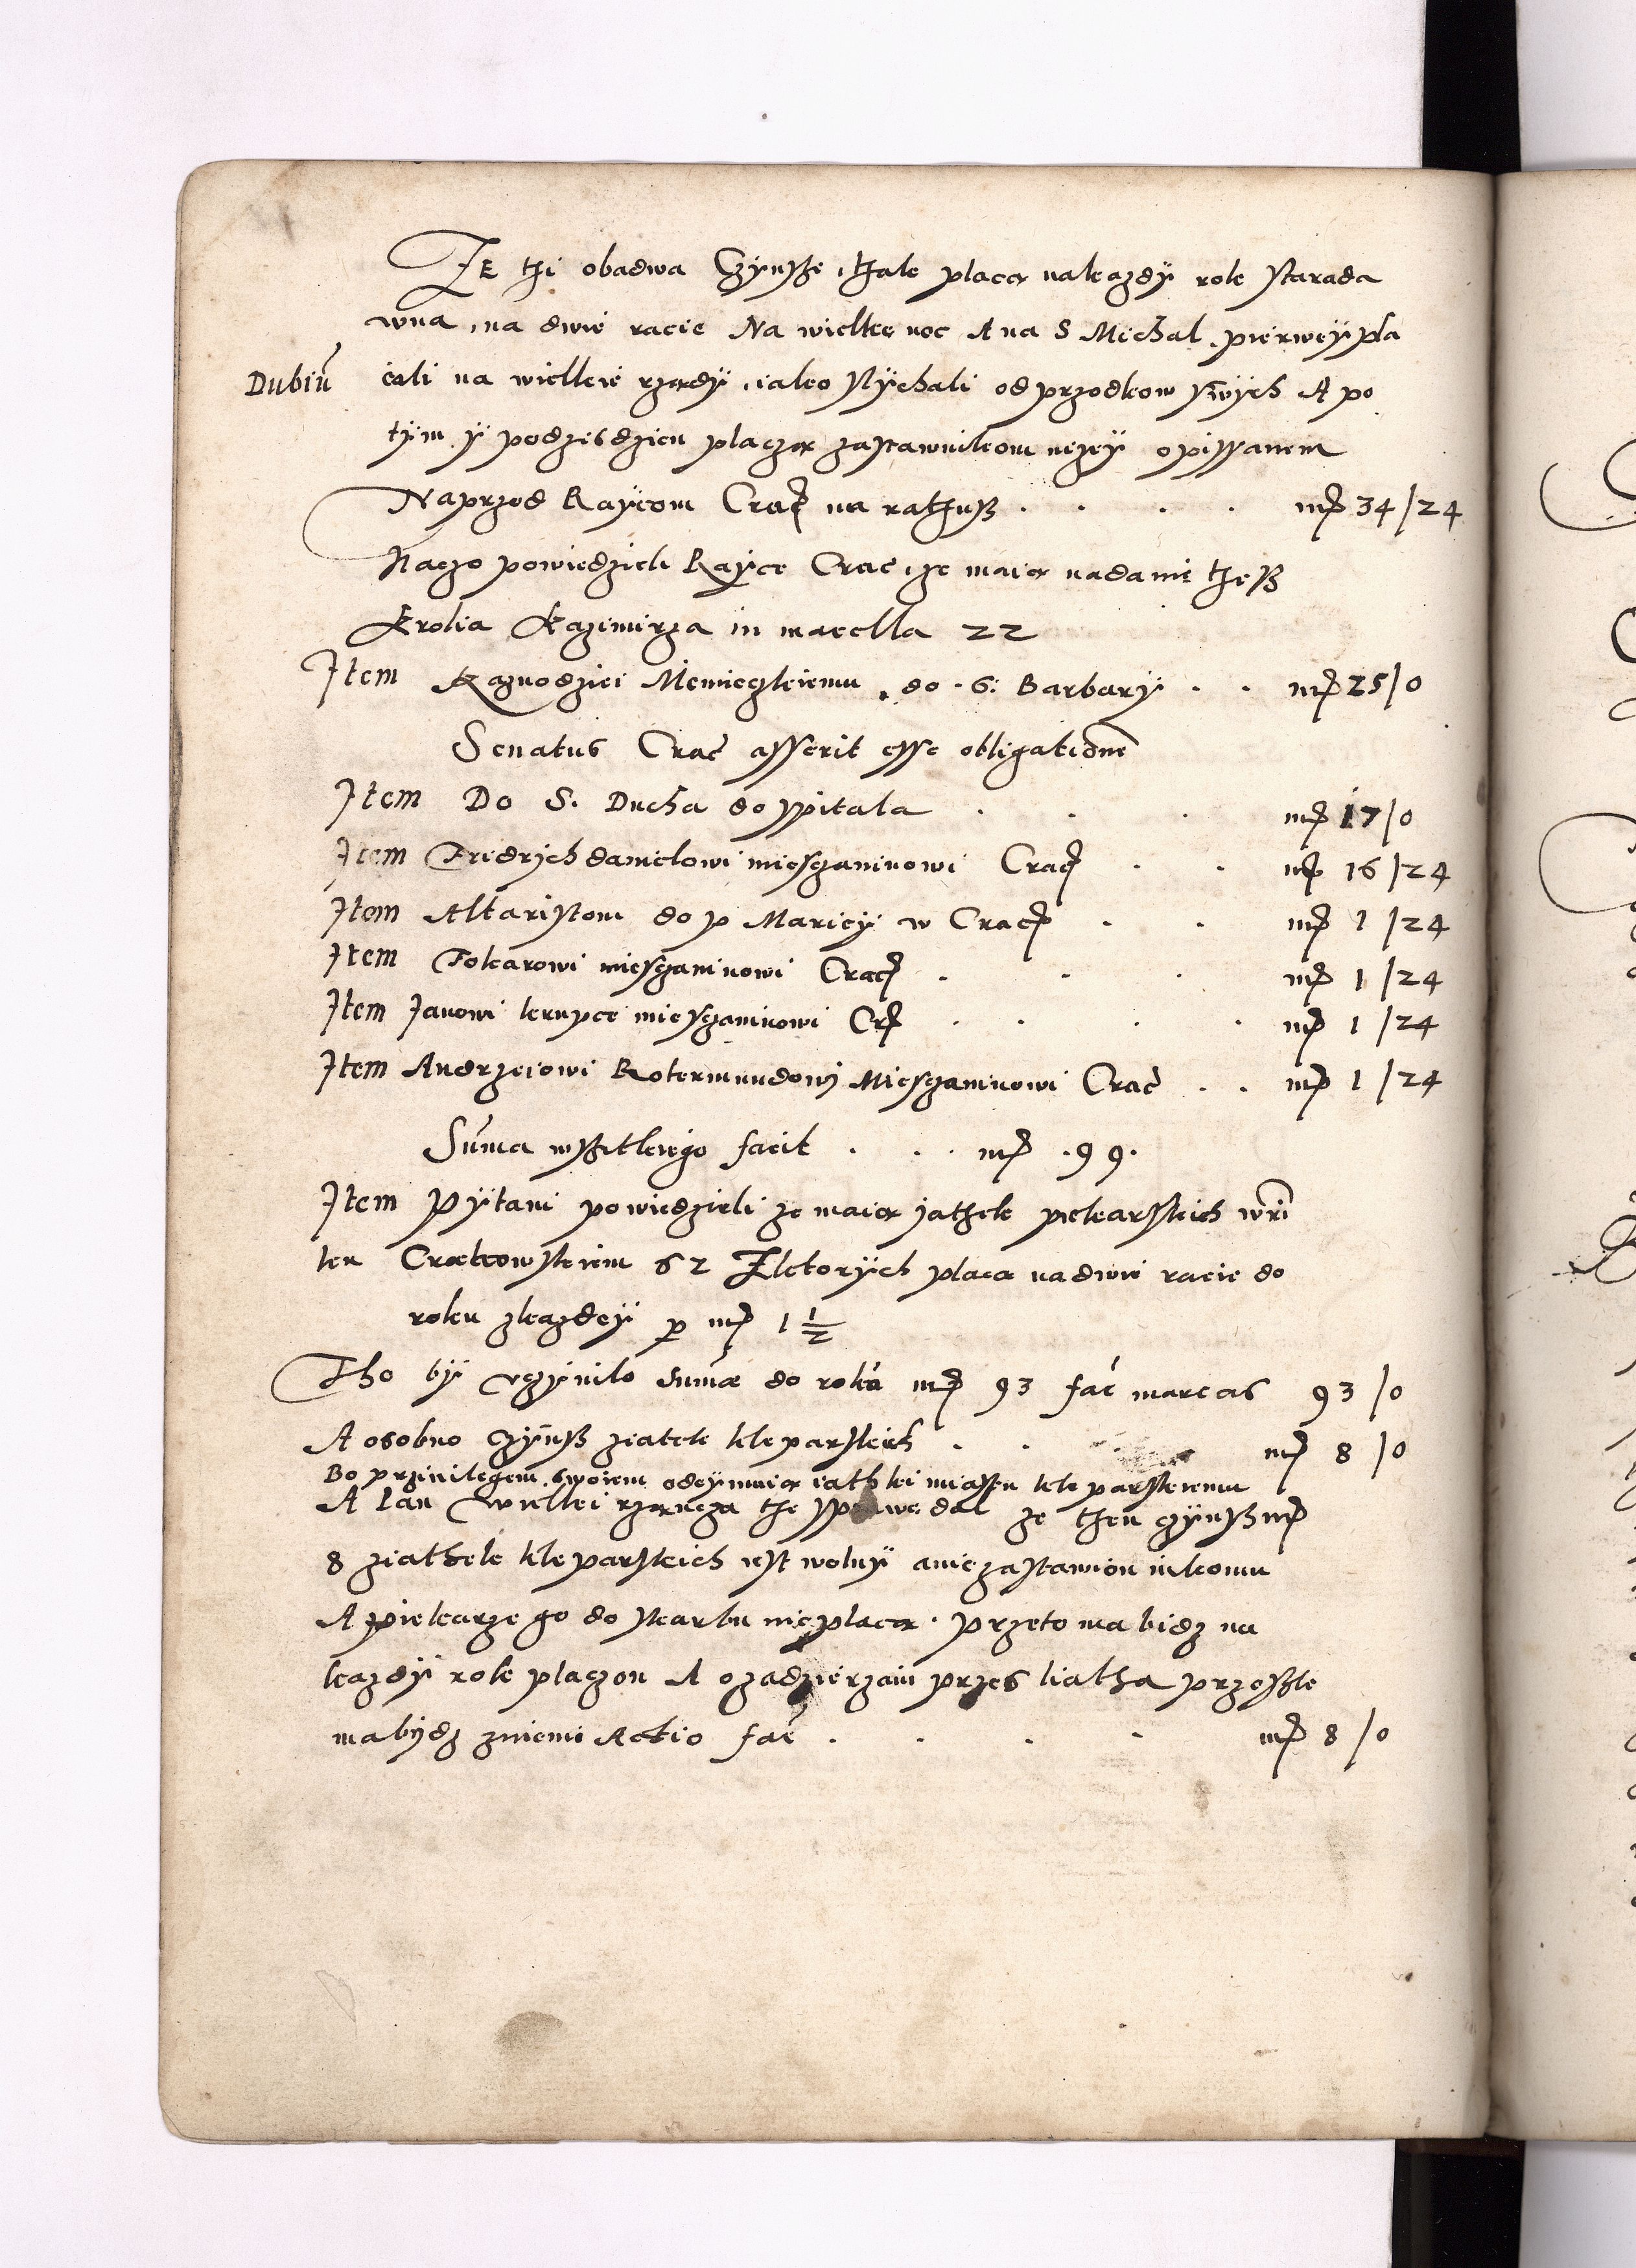 ZE thi obadwa Czynsze, thak placą nakazdÿ rok starada
wna, na dwie racie Na wielką noc A na S Michal, pierweÿ pla
Dubiū
cali na wielkie rządÿ, iako slÿchali od przodkow swÿch A po
tÿm ÿ podzisdzien placzą zastawnikom nizeÿ opissanem
Naprzod Raÿcom Crac̄ na rathusz . . . . mr̄ 34/24
Naczo powiedzieli Rayce Crac, ze maią nadanie theß
Krolia Kazimirza in macella 22
Item Kaznodziei Niemieczkiemu do S: Barbarÿ . . mr̄ 25/0
Senatus Crac̄ asserit esse obligationē
Item Do S. Ducha do sspitala . . . mr̄ 17/0
Item Fridrich danielowi miesczaninowi Crac̄ . . mr̄ 16/24
Item Altaristom do p Mariey w Crac̄ . . mr̄ 1/24
Item Folkarowi miesczaninowi Crac̄ . . . mr̄ 1/24
Item Janowi krupce miesczaninowi Cr̄ . . . . mr̄ 1/24
Item Andrzeiowi Rotermundowi Miesczaninowi Crac̄ . . mr̄ 1/24
Sum̄a wssitkiego facit . . . mr̄ .99.
Item Pÿtani powiedzieli ze maią jathek piekarskich wrin
ku Crakowskiem 62 Zktorÿch placa nadwie racie do
roku zkazdeÿ p mr̄ 1 1/2
Tho bÿ vczÿnilo sum̄ą do roku mr̄ 93 fac̄ marcas 93/0
A osobno czÿnsz ziatek kleparskich . . mr̄ 8/0
Bo przivilegem swoiem odeymuią iathki miastu kleparskiemu
A Jan wielki rządcza the sprawę dal ze then czÿnsz mr̄
8 ziathek kleparskich iest wolnÿ aniezastawion nikomu
A piekarze go do skarbu nieplacą. przeto ma bidz na
kazdÿ rok placzon A ozadzierzani przes liatha przeszle
mabÿdz zniemi Actio fac̄ . . . . mr̄ 8/0